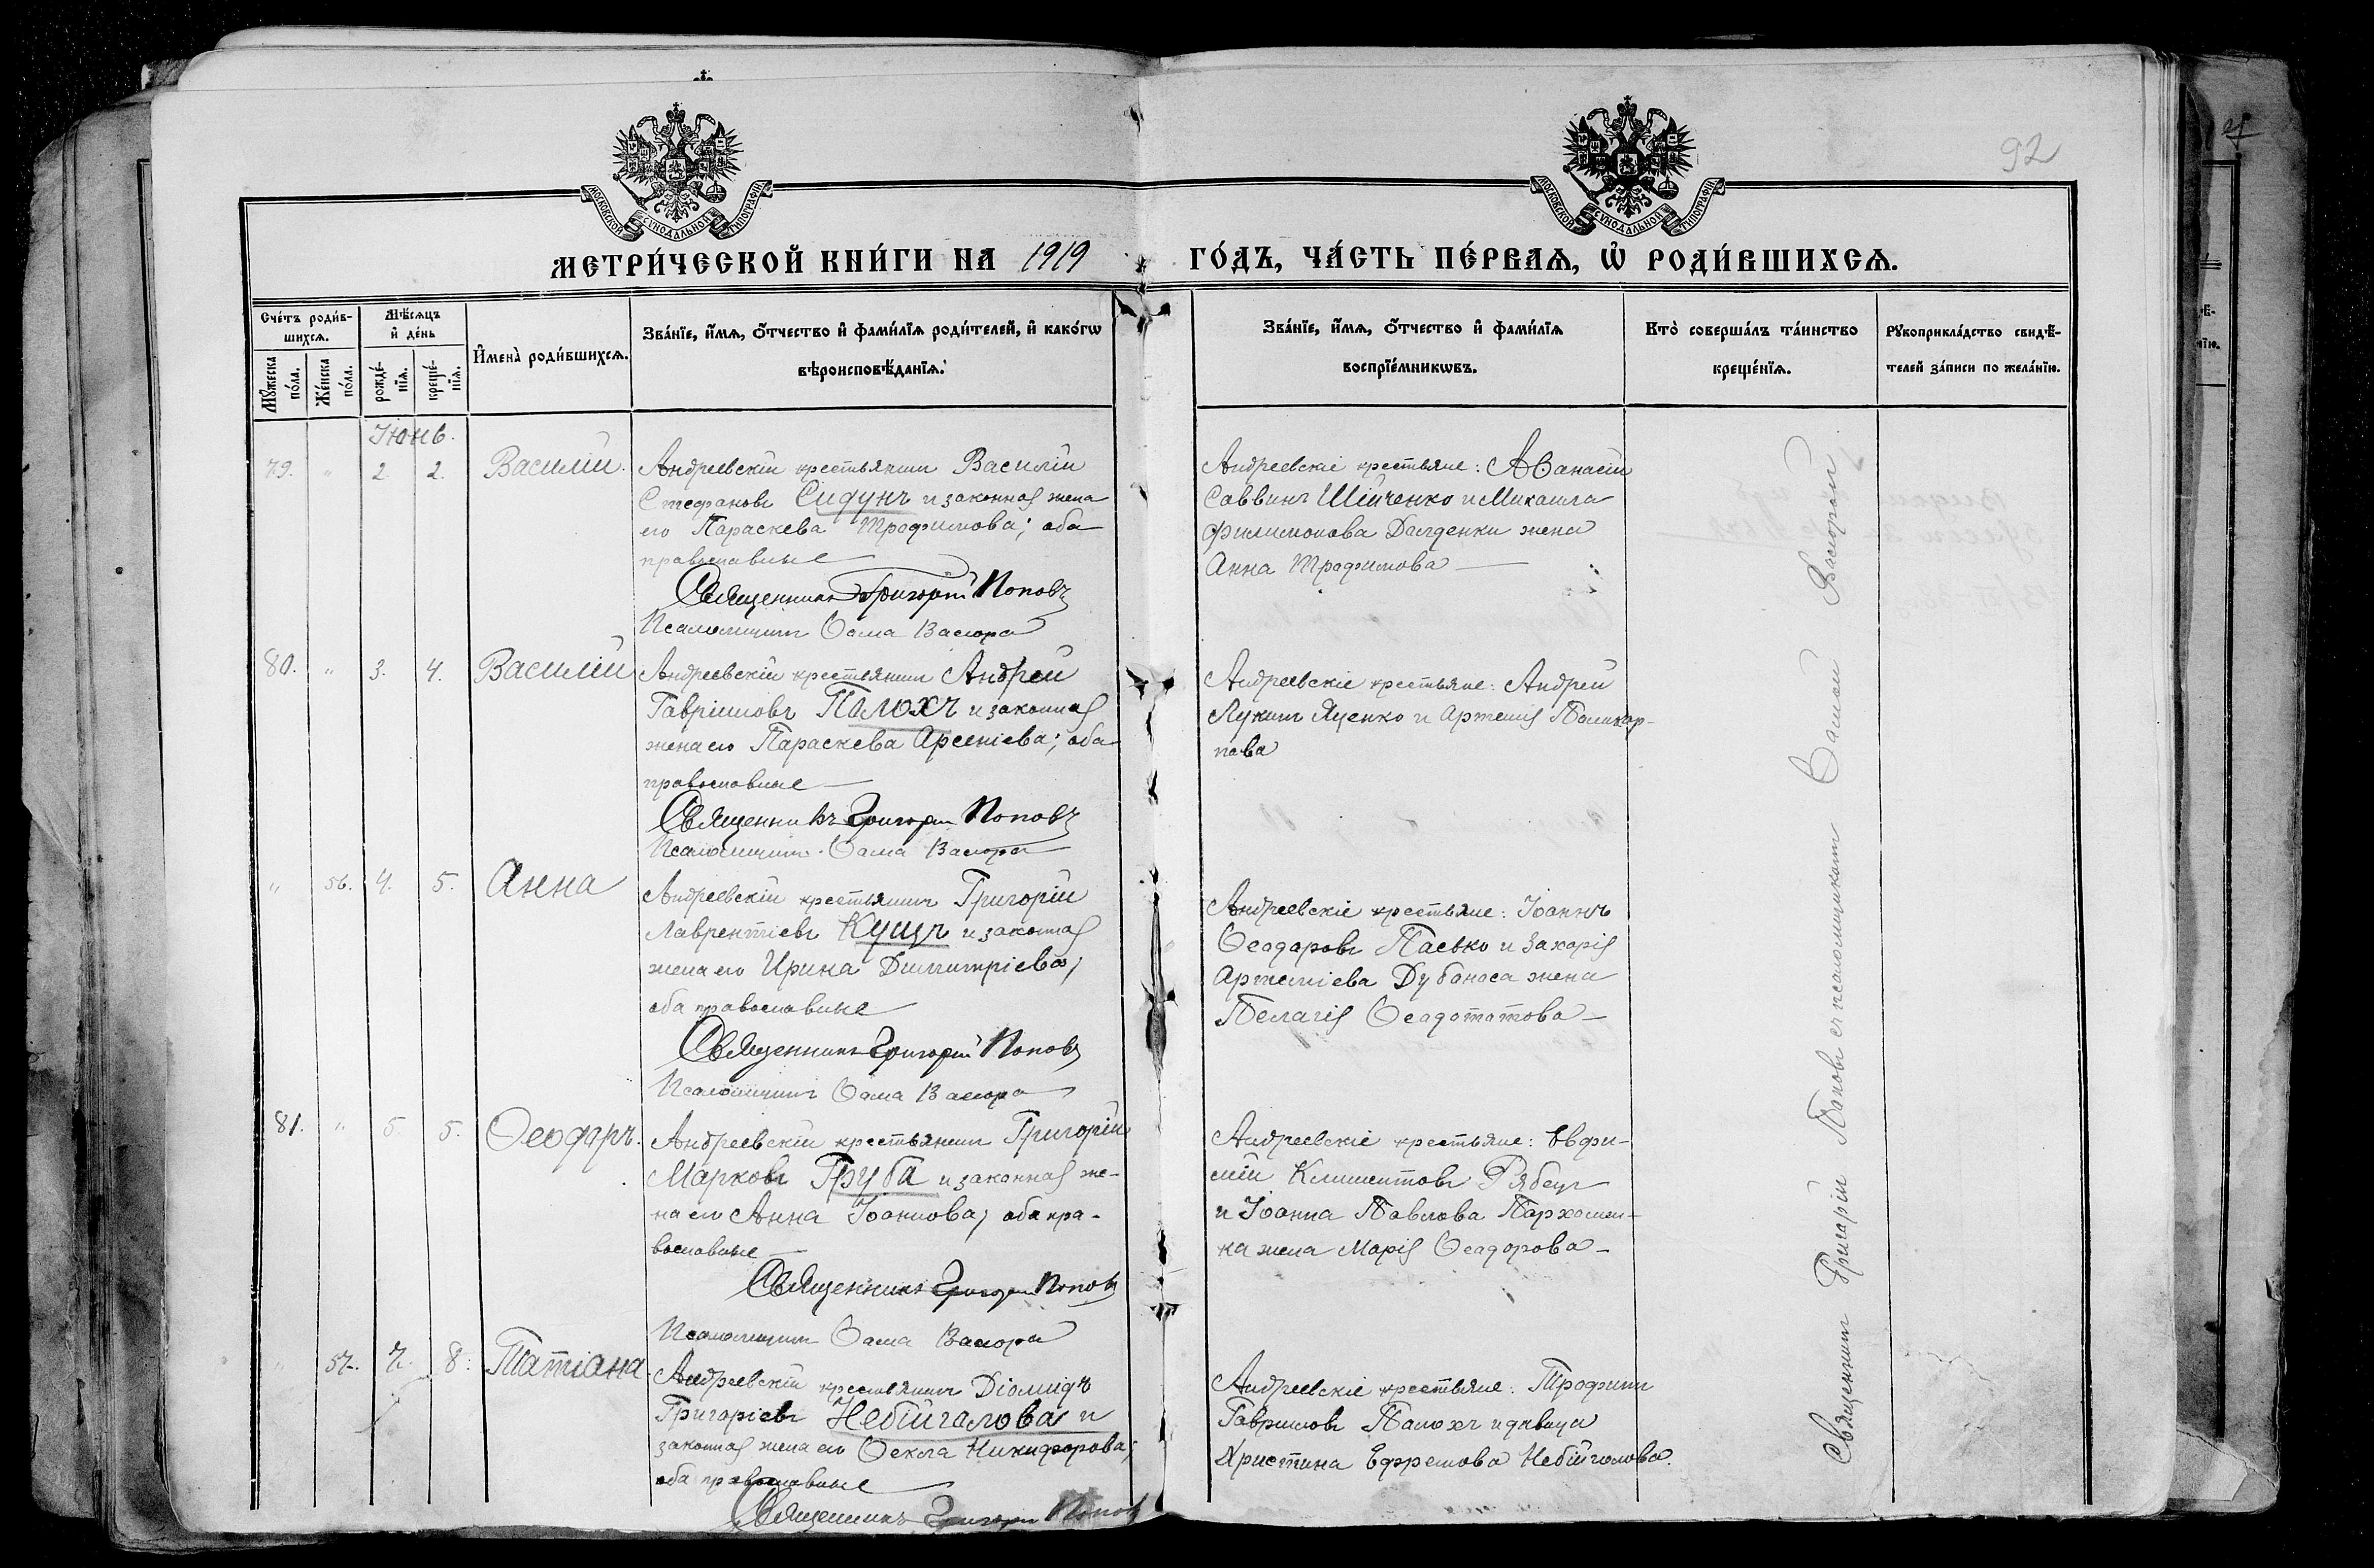 92
МОСКОВСКОЙ СѴНОДАЛЬНОЙ ТИПОГРАФІИ
МОСКОВСКОЙ СѴНОДАЛЬНОЙ ТИПОГРАФІИ
МЕТРИ́ЧЕСКОЙ КНИ́ГИ НА 1919 ГО́ДЪ, ЧА́СТЬ ПЕ́РВАѦ, Ѡ҆ РОДИ́ВШИХСѦ.
Сче́тъ роди́в-
шихсѧ.
Мꙋ́жеска по́ла.
Же́нска по́ла.
Мѣ́сѧцъ
и҆ де́нь
рожде́-нїѧ.
креще́-нїѧ.
И҆мена̀ роди́вшихсѧ.
Зва́нїе, и҆́мѧ, ѻ҆́тчество и҆ фами́лїѧ роди́телей, и҆ како́гѡ
вѣроисповѣ́данїѧ.
Зва́нїе, и҆́мѧ, ѻ҆́тчество и҆ фами́лїѧ
воспрїе́мникѡвъ.
Кто̀ соверша́лъ та́инство
креще́нїѧ.
Рꙋкоприкла́дство свидѣ́-
телей за́писи по жела́нїю.
Іюнь.
79. " 2 2. Василій.
Андреевскій крестьянинъ Василій
Стефановъ Сидунъ и законная жена
его Параскева Трофимова; оба
православные
Священникъ Григорій Поповъ
Псаломщикъ Ѳома Вакюра
Андреевскіе крестьяне: Аѳанасій
Саввинъ Шійченко и Михаила
Филимонова Далденки жена
Анна Трофимова
80. " 3. 4. Василій
Андреевскій крестьянинъ Андрей
Гавріиловъ Палохъ и законная
жена его Параскева Арсеніева; оба
православные
Священникъ Григорій Поповъ
Псаломщикъ Ѳома
Андреевскіе крестьяне: Андрей
Лукинъ Яценко и Артемія Поликар-
пова
" 56. 4. 5. Анна
Андреевскій крестьянинъ Григорій
Лаврентіевъ Кущъ и законная
жена его Ирина Димитріева;
оба православные
Священникъ Григорій Поповъ
Псаломщикъ Ѳома
Андреевскіе крестьяне: Іоаннъ
Ѳеодоровъ Пасько и Захарія
Артеміева Дубоноса жена
Пелагія
81. " 5. 5. Ѳеодоръ.
Андреевскій крестьянинъ Григорій
Марковъ Груба и законная же-
на его Анна Іоаннова; оба пра-
вославные
Священникъ Григорій Поповъ
Псаломщикъ Ѳома
Андреевскіе крестьяне: Евфи-
мій Климентовъ Рябецъ
и Іоанна Павлова Пархомен-
ка жена Марія Ѳеодорова
" 57. 7. 8. Татіана.
Андреевскій крестьянинъ Діомидъ
Григоріевъ Небійголова и
законная жена его Ѳекла Никифорова;
оба православные
Священникъ Григорій Поповъ
Андреевскіе крестьяне: Трофимъ
Гавриловъ Палохъ и дѣвица
Христина Ефремова Небійголова.
Священникъ Григорій Поповъ съ псаломщикомъ Ѳомой